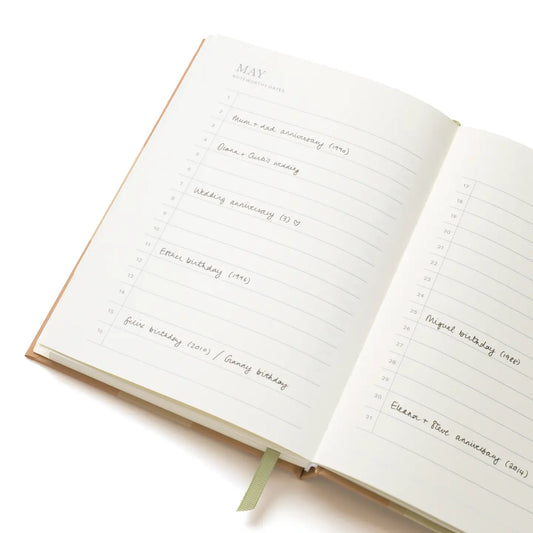 MAY
NOTEWORTHY DATES
1
2 Mum + dad anniversary (1990)
3
4 Diana + wedding
5
6
7 Wedding anniversary (3) ♡
8
9
10
11 Esther birthday (1996)
12
13
14
15 Felix birthday (2010) / Granny birthday
16
17
18
19
20
21
22
23
24
25 Miguel birthday (1988)
26
27
28
29
30 Eleanor + Steve anniversary (2014)
31